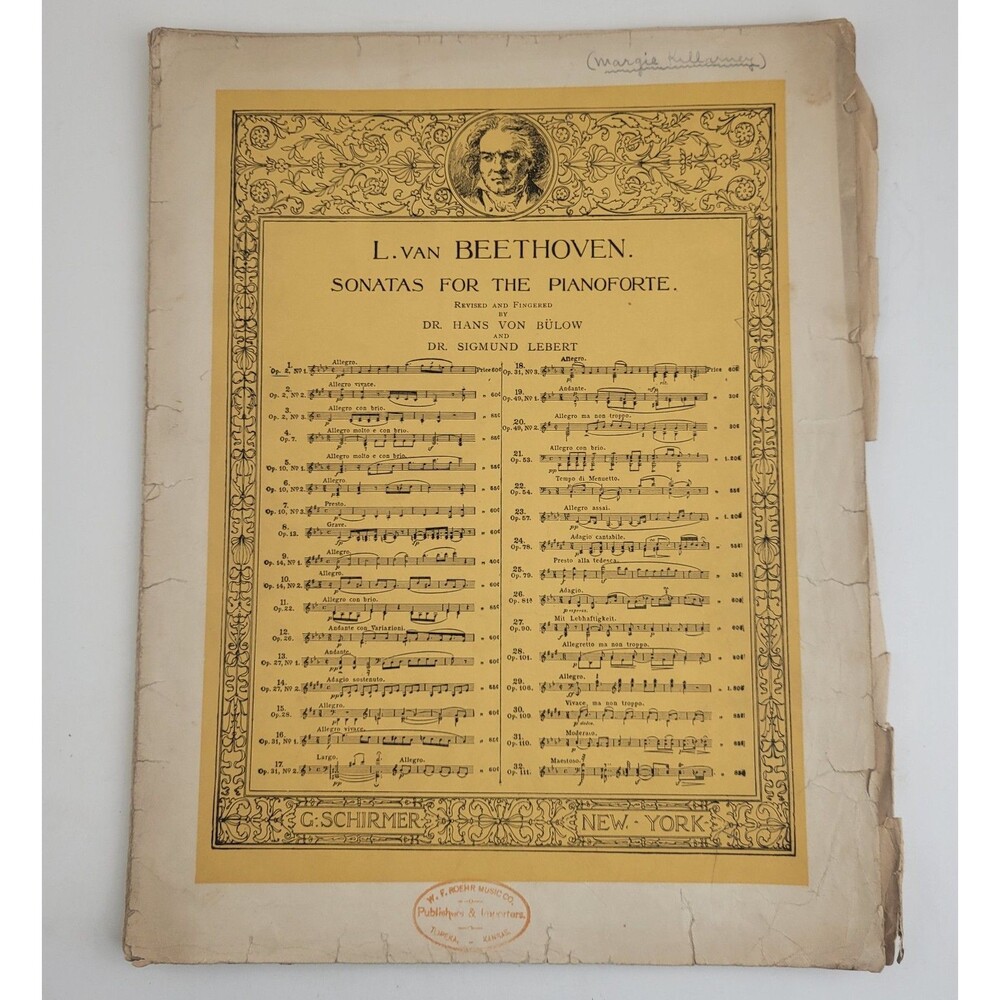 (Margie Killarney)
L. VAN BEETHOVEN.
SONATAS FOR THE PIANOFORTE.
REVISED AND FINGERED
BY
DR. HANS VON BÜLOW
AND
DR. SIGMUND LEBERT
1. Allegro.
Op. 2, Nº 1. Price 60¢
2. Allegro vivace.
Op. 2, Nº 2. " 60¢
3. Allegro con brio.
Op. 2, Nº 3. " 85¢
4. Allegro molto e con brio.
Op. 7. " 85¢
5. Allegro molto e con brio.
Op. 10, Nº 1. " 85¢
6. Allegro.
Op. 10, Nº 2. " 60¢
7. Presto.
Op. 10, Nº 3. " 60¢
8. Grave.
Op. 13. " 60¢
9. Allegro.
Op. 14, Nº 1. " 60¢
10. Allegro.
Op. 14, Nº 2. " 60¢
11. Allegro con brio.
Op. 22. " 85¢
12. Andante con Variazioni.
Op. 26. " 60¢
13. Andante.
Op. 27, Nº 1. " 60¢
14. Adagio sostenuto.
Op. 27, Nº 2. "
15. Allegro.
Op. 28. " 60¢
16. Allegro vivace.
Op. 31, Nº 1. "
17. Largo. Allegro.
Op. 31, Nº 2. " 60¢
18. Allegro.
Op. 31, Nº 3. Price 60¢
19. Andante.
Op. 49, Nº 1. " 30¢
20. Allegro ma non troppo.
Op. 49, Nº 2. " 30¢
21. Allegro con brio.
Op. 53. "
22. Tempo di Menuetto.
Op. 54. "
23. Allegro assai.
Op. 57. "
24. Adagio cantabile.
Op. 78. "
25. Presto alla tedesca.
Op. 79. "
26. Adagio.
Op. 81ª "
27. Mit Lebhaftigkeit.
Op. 90. "
28. Allegretto ma non troppo.
Op. 101. "
29. Allegro.
Op. 106. "
30. Vivace, ma non troppo.
Op. 109. "
31. Moderato.
Op. 110. "
32. Maestoso.
Op. 111. "
G. SCHIRMER NEW · YORK
W. F. ROEHR MUSIC CO.
Publishers & Importers.
TOPEKA, KANSAS.